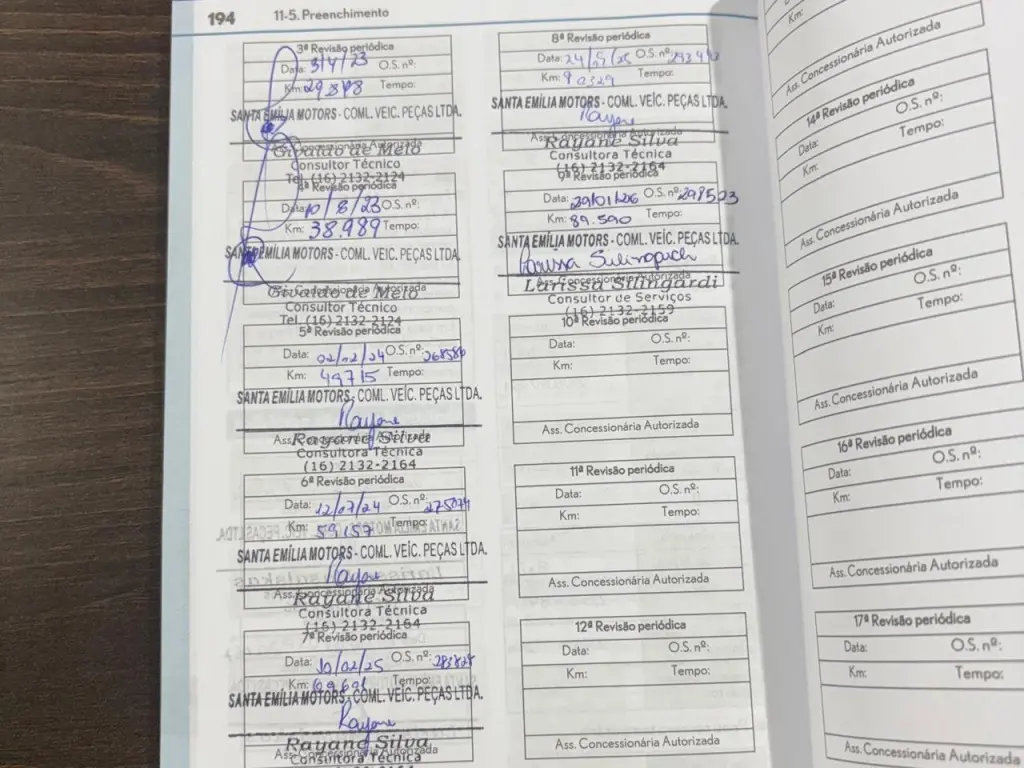 194 11-5. Preenchimento
3ª Revisão periódica
Data: 3/4/23 O.S. nº:
Km: 29.878 Tempo:
SANTA EMÍLIA MOTORS - COML. VEÍC. PEÇAS LTDA.
Ass. Concessionária Autorizada
Givaldo de Melo
Consultor Técnico
Tel. (16) 2132-2124
4ª Revisão periódica
Data: 10/8/23 O.S. nº:
Km: 38.989 Tempo:
SANTA EMÍLIA MOTORS - COML. VEÍC. PEÇAS LTDA.
Ass. Concessionária Autorizada
Givaldo de Melo
Consultor Técnico
Tel. (16) 2132-2124
5ª Revisão periódica
Data: 02/12/24 O.S. nº: 268580
Km: 49715 Tempo:
SANTA EMÍLIA MOTORS - COML. VEÍC. PEÇAS LTDA.
Rayane
Ass. Concessionária Autorizada
Rayane Silva
Consultora Técnica
(16) 2132-2164
6ª Revisão periódica
Data: 12/07/24 O.S. nº: 275074
Km: 59.157 Tempo:
SANTA EMÍLIA MOTORS - COML. VEÍC. PEÇAS LTDA.
Rayane
Ass. Concessionária Autorizada
Rayane Silva
Consultora Técnica
(16) 2132-2164
7ª Revisão periódica
Data: 10/02/25 O.S. nº:
Km: 69691 Tempo:
SANTA EMÍLIA MOTORS - COML. VEÍC. PEÇAS LTDA.
Rayane
Ass. Concessionária Autorizada
Rayane Silva
Consultora Técnica
8ª Revisão periódica
Data: O.S. nº:
Km: Tempo:
SANTA EMÍLIA MOTORS - COML. VEÍC. PEÇAS LTDA.
Rayane
Ass. Concessionária Autorizada
Rayane Silva
Consultora Técnica
(16) 2132-2164
9ª Revisão periódica
Data: 29/01/26 O.S. nº: 298523
Km: 89.590 Tempo:
SANTA EMÍLIA MOTORS - COML. VEÍC. PEÇAS LTDA.
Larissa Silingardi
Ass. Concessionária Autorizada
Larissa Silingardi
Consultor de Serviços
(16) 2132-2159
10ª Revisão periódica
Data: O.S. nº:
Km: Tempo:
Ass. Concessionária Autorizada
11ª Revisão periódica
Data: O.S. nº:
Km: Tempo:
Ass. Concessionária Autorizada
12ª Revisão periódica
Data: O.S. nº:
Km: Tempo:
Ass. Concessionária Autorizada
Km:
Ass. Concessionária Autorizada
14ª Revisão periódica
Data: O.S. nº:
Km: Tempo:
Ass. Concessionária Autorizada
15ª Revisão periódica
Data: O.S. nº:
Km: Tempo:
Ass. Concessionária Autorizada
16ª Revisão periódica
Data: O.S. nº:
Km: Tempo:
Ass. Concessionária Autorizada
17ª Revisão periódica
Data: O.S. nº:
Km: Tempo:
Ass. Concessionária Autorizada